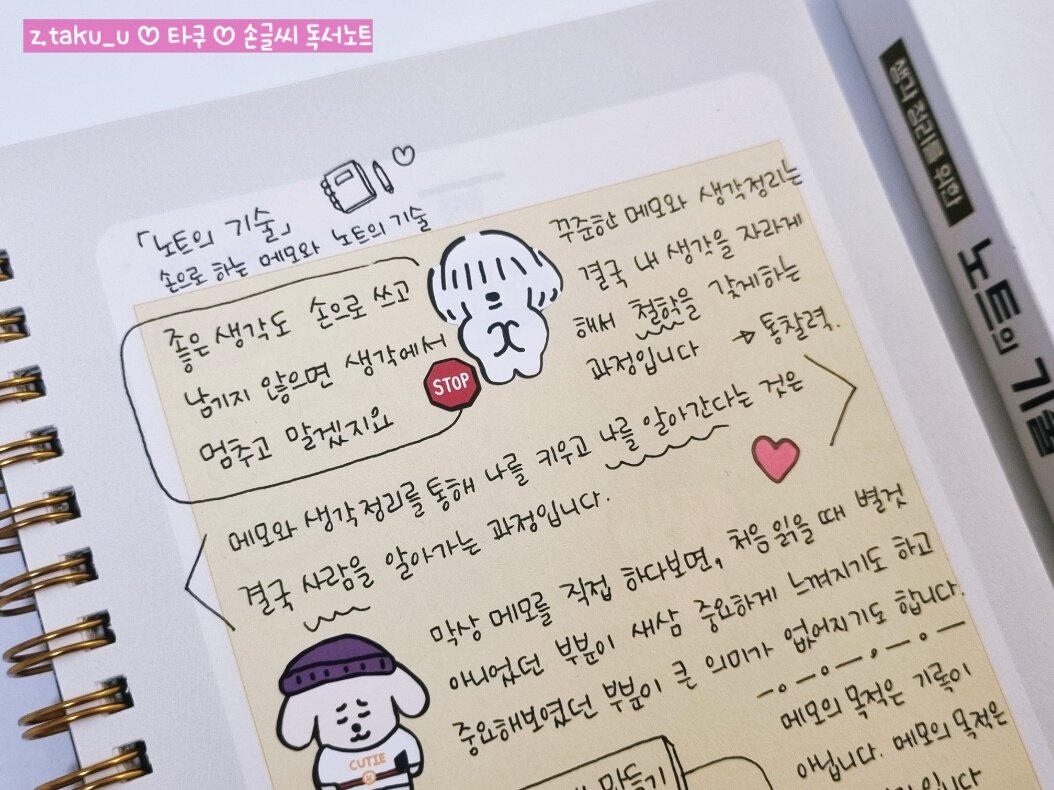 z.taku_u ♡ 타쿠 ♡ 손글씨 독서노트
생각 정리를 위한
노트의 기술
「노트의 기술」
손으로 하는 메모와 노트의 기술
좋은 생각도 손으로 쓰고
남기지 않으면 생각에서
멈추고 말겠지요
STOP
꾸준한 메모와 생각정리는
결국 내 생각을 자라게
해서 철학을 갖게하는
과정입니다 → 통찰력.
메모와 생각정리를 통해 나를 키우고 나를 알아간다는 것은
결국 사람을 알아가는 과정입니다.
막상 메모를 직접 하다보면, 처음 읽을 때 별것
아니었던 부분이 새삼 중요하게 느껴지기도 하고
중요해보였던 부분이 큰 의미가 없어지기도 합니다.
메모의 목적은 기록이
아닙니다. 메모의 목적은
입니다
만들기
CUTIE